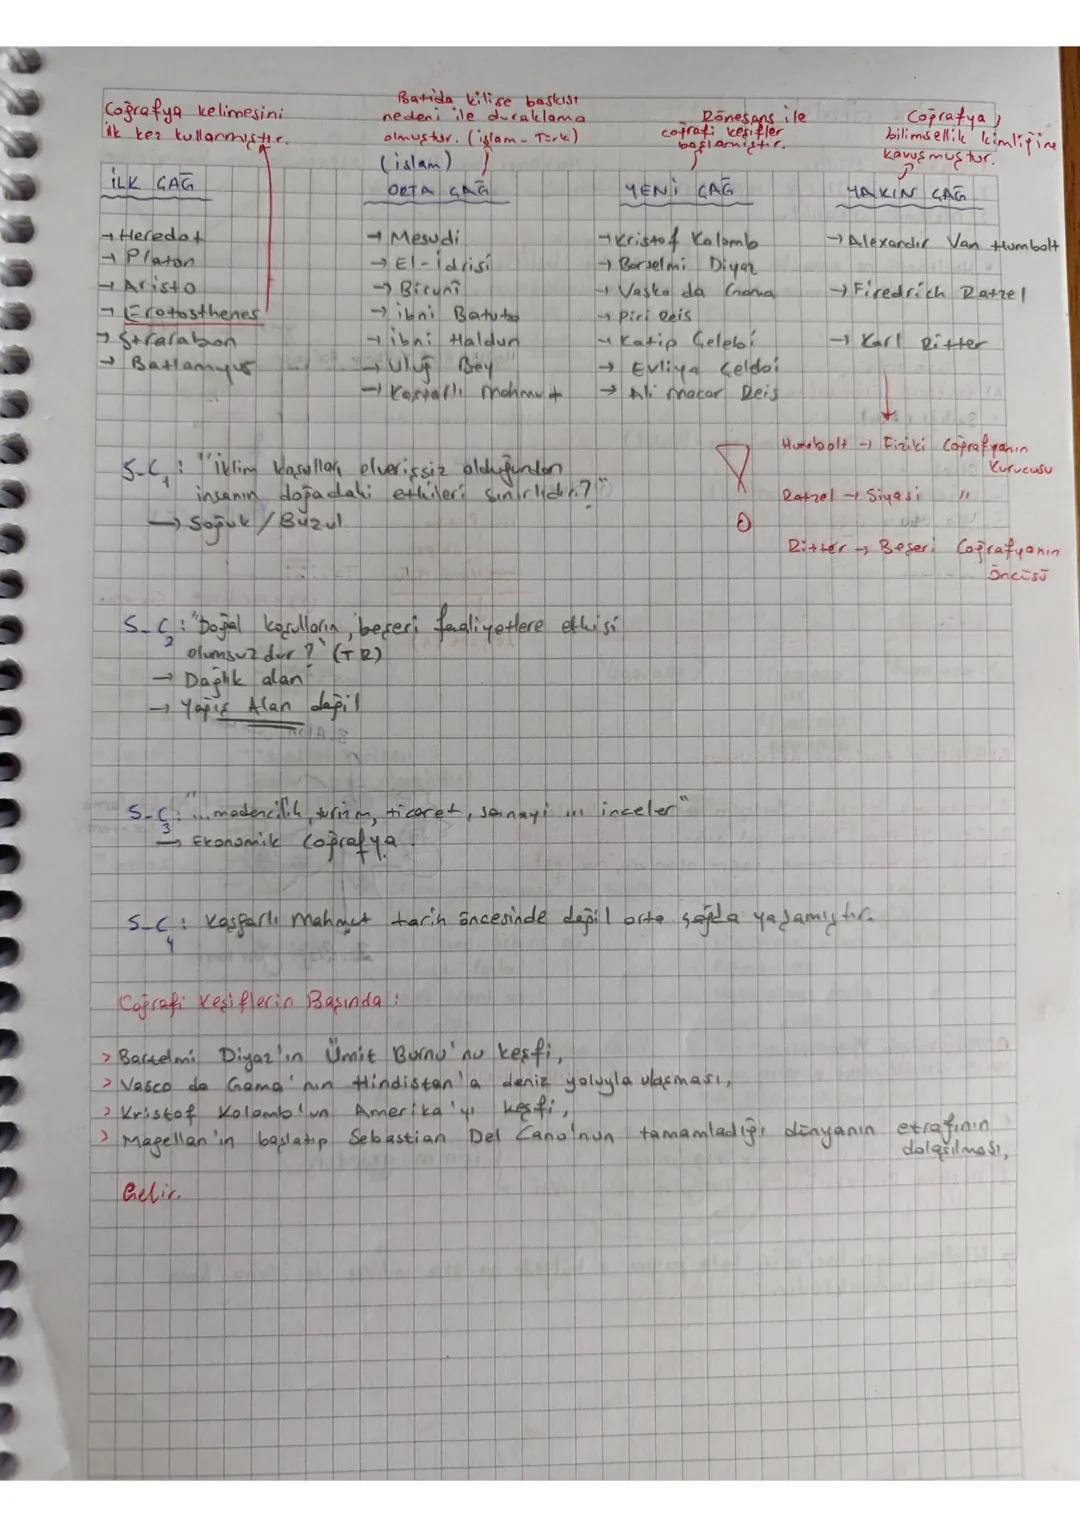 Coğrafya kelimesini
ilk kez kullanmıştır.
Batıda kilise baskısı
nedeni ile duraklama
olmuştur. (islam - Türk)
(islam)
Rönesans ile
coğrafi keşifler
başlamıştır.
Coğrafya,
bilimsellik kimliğine
kavuşmuştur.
İLK ÇAĞ
→ Heredot
→ Platon
→ Aristo
→ Eratosthenes
→ Strarabon
→ Batlamyus
ORTA ÇAĞ
→ Mesudi
→ El-idrisi
→ Biruni
→ ibni Batuta
→ ibni Haldun
→ Uluğ Bey
→ Kaşgarlı Mahmut
YENİ ÇAĞ
→ Kristof Kolomb
→ Barselmi Diyaz
→ Vasko da Gama
→ Piri Reis
→ Katip Çelebi
→ Evliya Çeldbi
→ Ali Macar Reis
YAKIN ÇAĞ
→ Alexandır Van Humbolt
→ Firedrich Ratzel
→ Karl Ritter
Humbolt → Fiziki Coğrafyanın
Kurucusu
Ratzel → Siyasi "
Ritter → Beşeri Coğrafyanın
Öncüsü
S-C1: "iklim koşulları elverişsiz olduğundan
insanın doğadaki etkileri sınırlıdır?"
→ Soğuk / Buzul
S-C2: "Doğal koşulların, beşeri faaliyetlere etkisi
olumsuzdur?" (TR)
→ Dağlık alan
→ Yapış Alan değil
S-C3: "... madencilik, turizm, ticaret, sanayi ... inceler"
→ Ekonomik Coğrafya.
S-C4: Kaşgarlı Mahmut tarih öncesinde değil orta çağda yaşamıştır.
Coğrafi Keşiflerin Başında:
> Bartelmi Diyaz'ın Ümit Burnu'nu keşfi,
> Vasco da Gama'nın Hindistan'a deniz yoluyla ulaşması,
> Kristof Kolomb'un Amerika'yı keşfi,
> Magellan'ın başlatıp Sebastian Del Cano'nun tamamladığı dünyanın etrafının
dolaşılması,
Gelir.